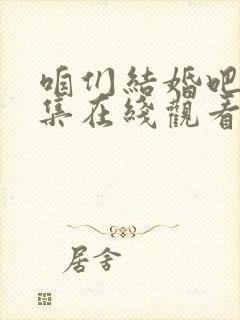 咱们結婚吧
集在綫觀看
居舍